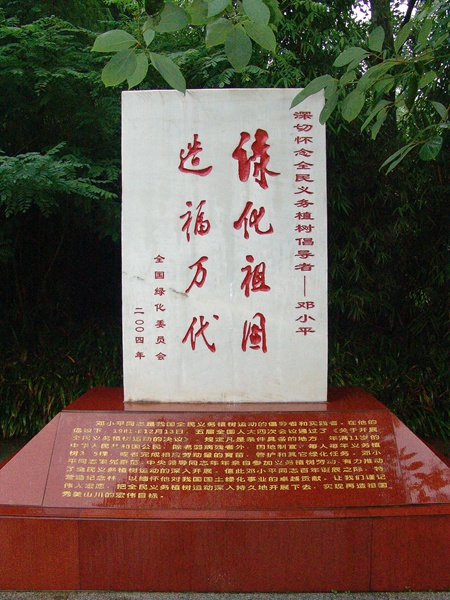 深切怀念全民义务植树倡导者——邓小平
绿化祖国
造福万代
全国绿化委员会
二〇〇四年
邓小平同志是我国全民义务植树运动的倡导者和实践者，在他的
倡议下，1981年12月13日，五届全国人大四次会议通过了《关于开展
全民义务植树运动的决议》，规定凡是条件具备的地方，年满11岁的
中华人民共和国公民，除老弱病残者外，因地制宜，每人每年义务植
树3—5棵，或者完成相应劳动量的育苗、管护和其它绿化任务。邓小
平同志 中央领导同志年年亲自参加义务植树劳动，有力推动
了全民义务植树运动的深入开展。值此邓小平同志百年诞辰之际，特
营造纪念林，以缅怀他对我国国土绿化事业的卓越贡献，让我们谨记
伟人宏志，把全民义务植树运动深入持久地开展下去，实现再造祖国
秀美山川的宏伟目标。